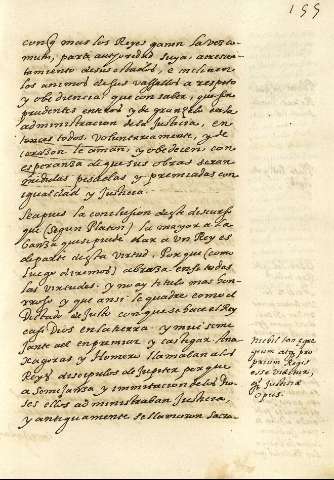 155
con q̃ mas los Reyes ganan la voz co-
mun, para authoridad suya, acrecen-
tamiento de sus estados, e inclinar
los animos de sus vassallos a respeto
y obediencia que con saber, que son
prudentes enteros y de gran zelo en la
administracion de la Justicia, en-
tonces todos voluntariamente, y de
coraçon le aman, y obedecen con
esperanza de que sus obras seran
medidas pesadas y premiadas con
igualdad y Justicia.
Sea pues la conclusion deste discurso
que (segun Platon) la mayor ala-
banza que se puede dar a un Rey es
de parte desta virtud. Porque (como
luego diremos) abraza en si todas
las virtudes. y no ay titulo mas hon-
rroso y que ansi le quadre como el
Dictado de Justo con que se hace el Rey
casi Dios en la tierra y muy seme
jante a el en premiar y castigar. Ana-
xagoras y Homero llamaban a los
Reyes discipulos de Jupiter porque
a semejanza y immitacion de los Dio-
ses ellos administraban Justicia,
y antiguamente se llamaron Sacra-
Nihil tam re
gium atq. pro
prium Regis
esse videtur,
q̃ Justitiæ
Opus.